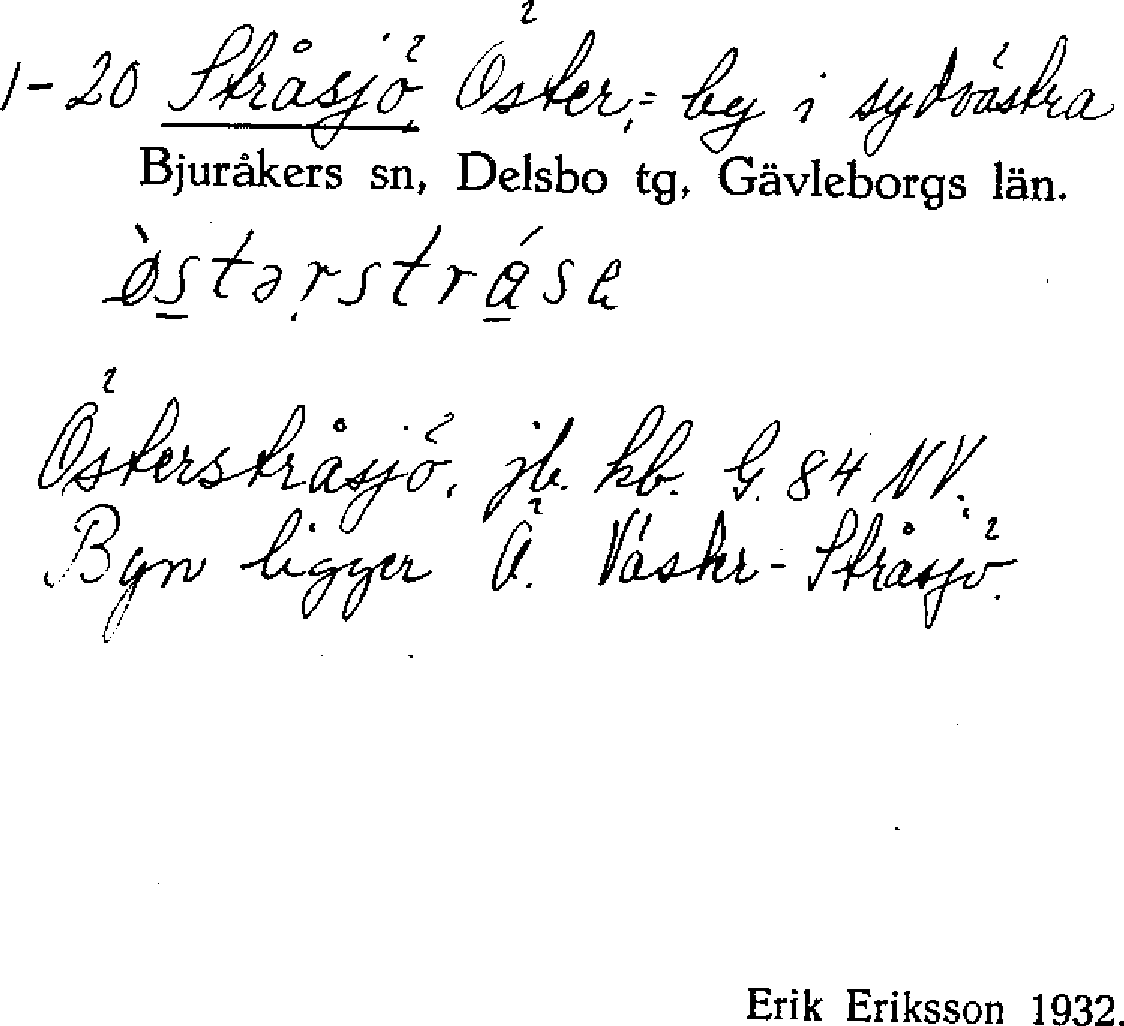 1-20 Stråsjö, Öster-, by i sydvästra
Bjuråkers sn, Delsbo tg, Gävleborgs län.
Österstråsjö, jb. kb. G. 84 NV.
Byn ligger Ö. Väster-Stråsjö.
Erik Eriksson 1932.